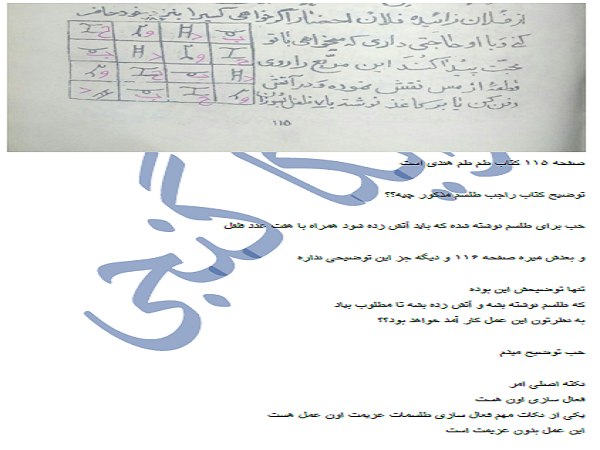 از فلان زائیده فلان احضار اگر خواهی کسیرا بنزد خود حاضر
کنی و با او حاجتی داری که میخواهی با تو
محبت پیدا کند این مربع را روی
قطعهٔ از مس نقش نموده و در آتش
دفن کن یا بر کاغذ نوشته با فلفل بسوزان
۱۱۵
صفحه ۱۱۵ کتاب طم طم هندی است
توضیح کتاب راجب طلسم مذکور چیه؟؟
خب برای طلسم نوشته شده که باید آتش زده شود همراه با هفت عدد فلفل
و بعدش میره صفحه ۱۱۶ و دیگه جز این توضیحی نداره
تنها توضیحش این بوده
که طلسم نوشته بشه و آتش زده بشه تا مطلوب بیاد
به نظرتون این عمل کار آمد خواهد بود؟؟
خب توضیح میدم
نکته اصلی امر
فعال سازی اون هست
یکی از نکات مهم فعال سازی طلسمات عزیمت اون عمل هست
این عمل بدون عزیمت است